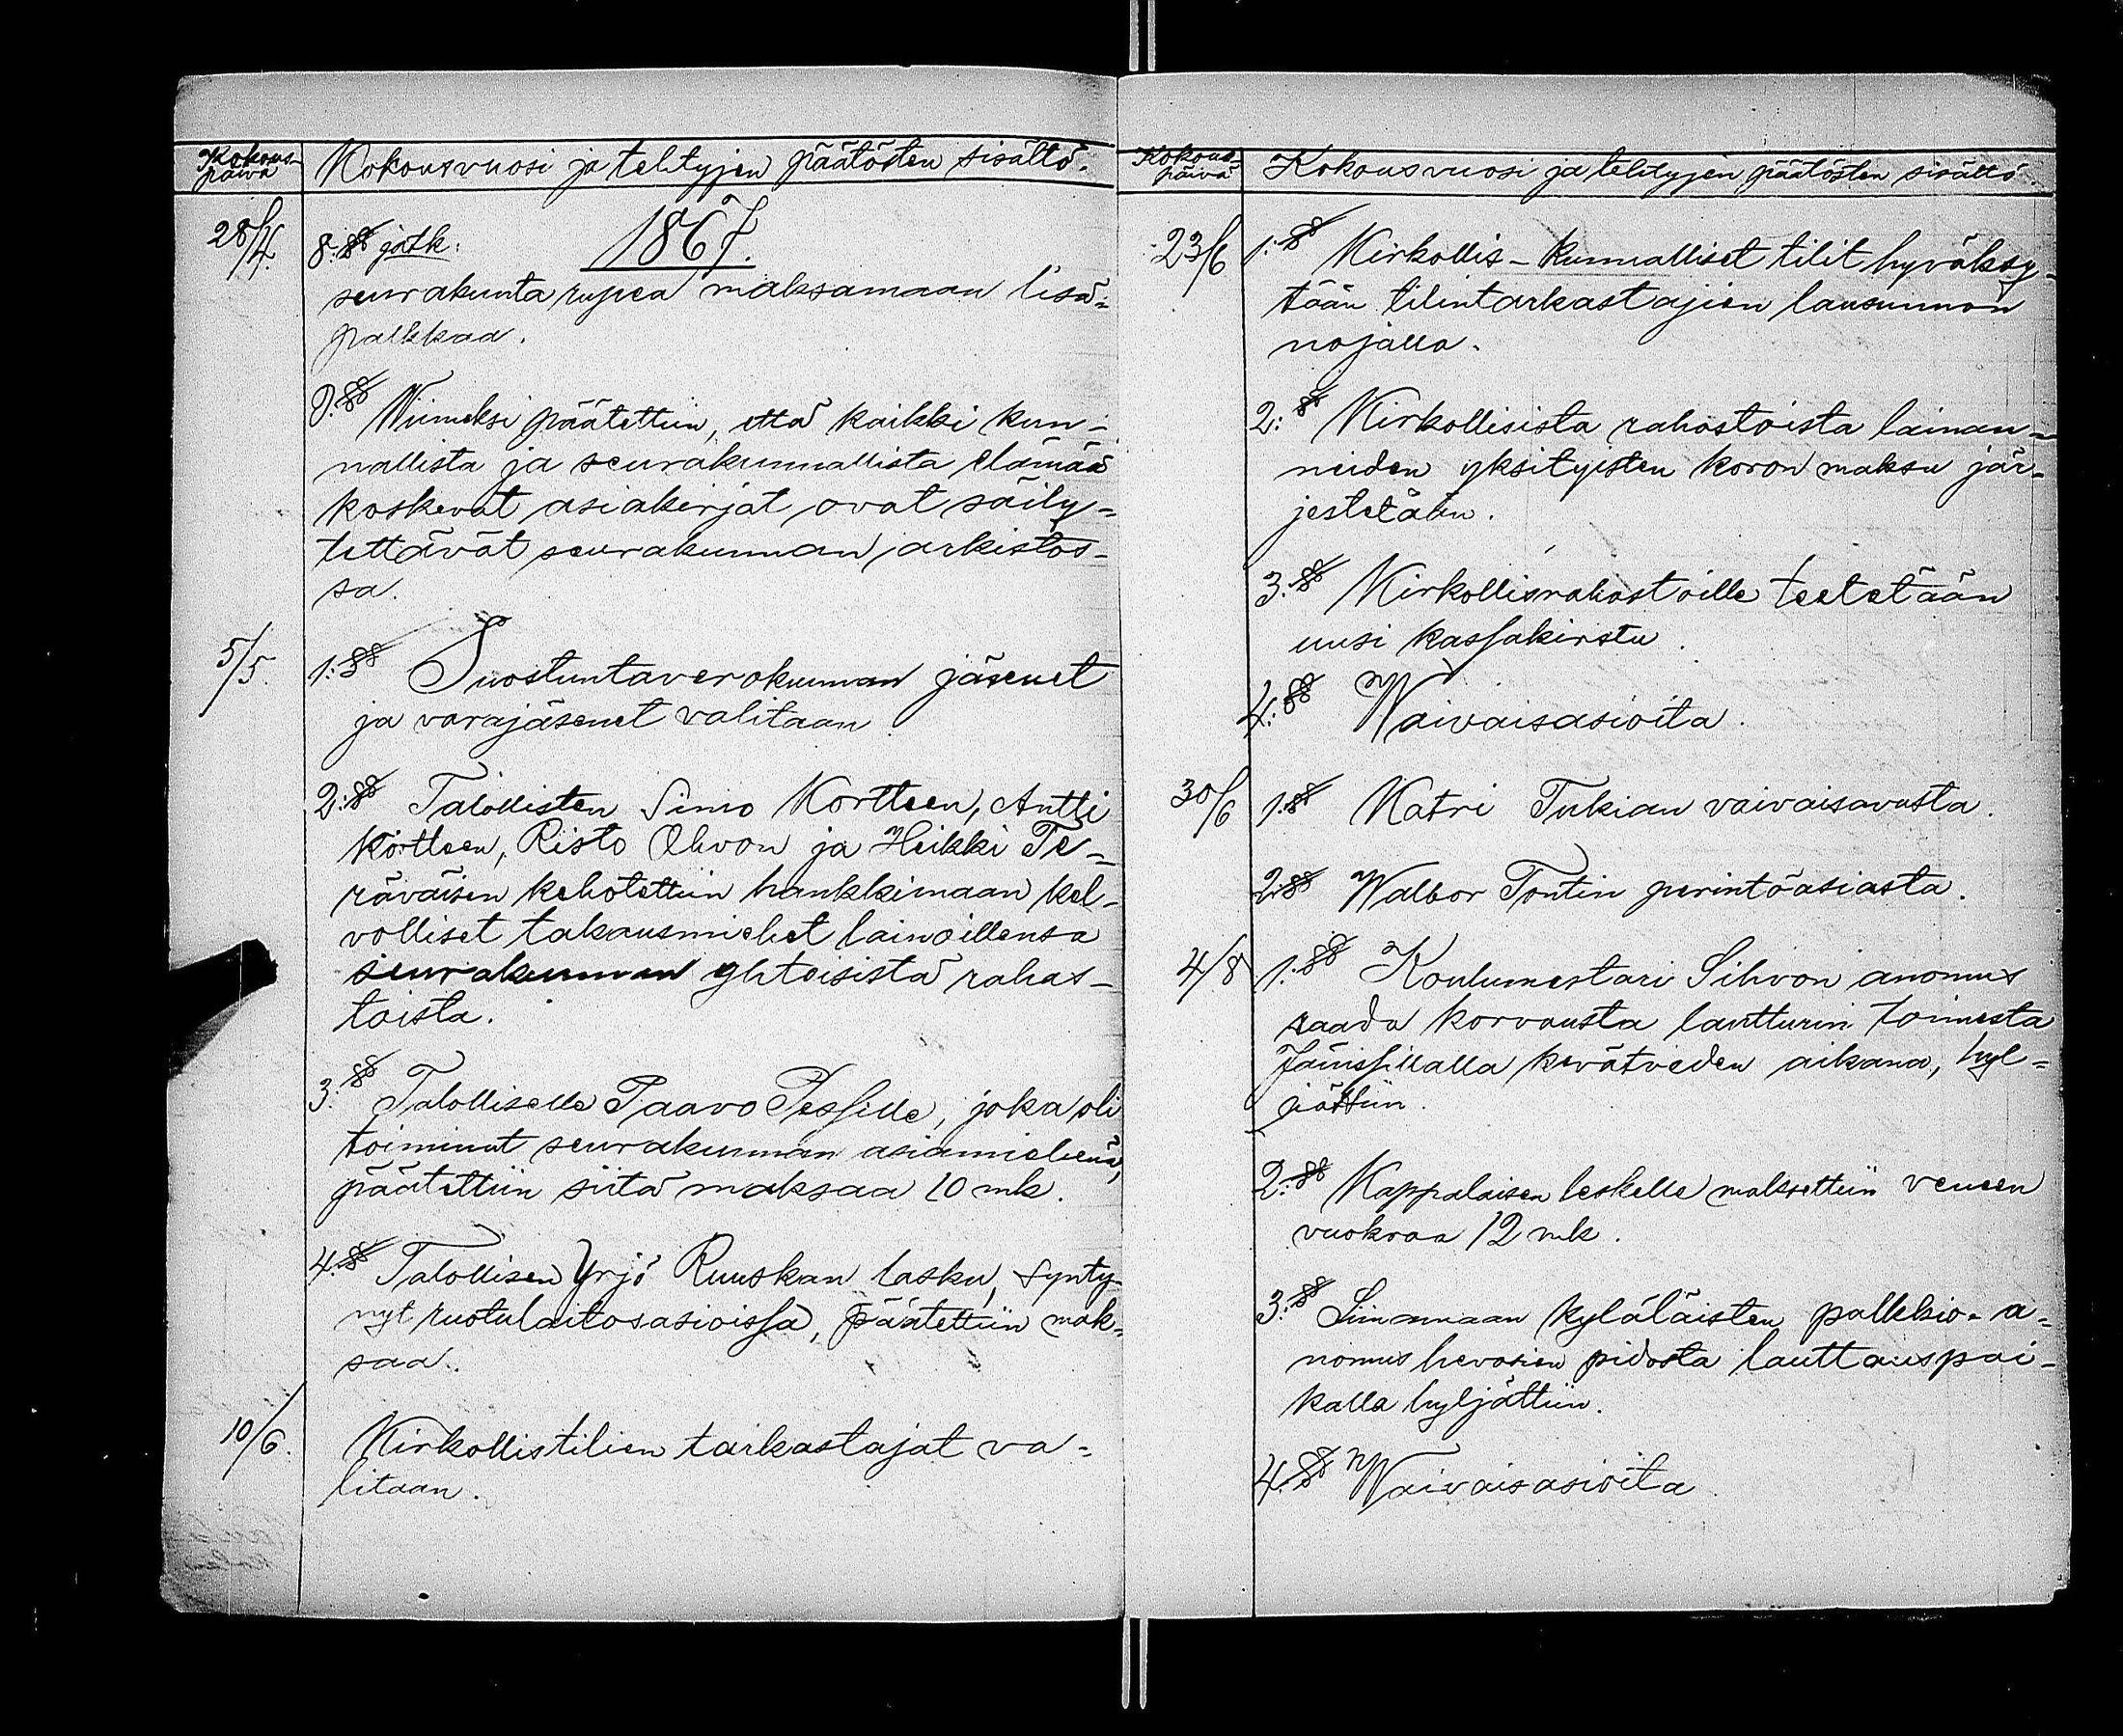 Kokous-
päivä
Kokousvuosi ja tehtyjen päätösten sisältö.
1867.
28/4.
8:§§ jatk:
seurakunta rupea maksamaan lisä-
palkkaa.
9:§§ Wiimeksi päätettiin, että kaikki kun-
nallista ja seurakunnallista elämää
koskevat asiakirjat ovat säily-
tettävät seurakunnan arkistos-
sa.
5/5.
1:§§ Suostuntaverokunnan jäsenet
ja varajäsenet valitaan.
2:§§ Talollisten Simo Kortteen, Antti
Kortteen, Risto Ohvon ja Heikki Te-
räväisen kehotettiin hankkimaan kel-
volliset takausmiehet lainoillensa
seurakunnan yhteisistä rahas-
toista.
3:§§ Talolliselle Paavo Pessille, joka oli
toiminut seurakunnan asiamiehenä,
päätettiin siitä maksaa 10 mk.
4:§§ Talollisen Yrjö Ruuskan lasku, synty-
nyt ruotulaitosasioissa, päätettiin mak-
saa.
10/6.
Kirkollistilien tarkastajat va-
litaan.
Kokous-
päivä
Kokousvuosi ja tehtyjen päätösten sisältö.
23/6
1:§§ Kirkollis-kunnalliset tilit hyväksy-
tään tilintarkastajien lausunnon
nojalla.
2:§§ Kirkollisista rahastoista lainan-
neiden yksityisten koron maksu jär-
jestetään.
3:§§ Kirkollisrahastoille teetetään
uusi kassakirstu.
4:§§ Waivaisasioita.
30/6
1:§§ Katri Tukian vaivaisavusta.
2:§§ Walbor Tontin perintöasiasta.
4/8
1:§§ Koulumestari Sihvon anomus
saada korvausta lautturin toimesta
Jänissillalla kevätveden aikana, hyl-
jättiin.
2:§§ Kappalaisen leskelle maksettiin veneen
vuokraa 12 mk.
3:§§ Liimamaan kyläläisten palkkio-a-
nomus hevosien pidosta lauttauspai-
kalla hyljättiin.
4:§§ Waivaisasioita